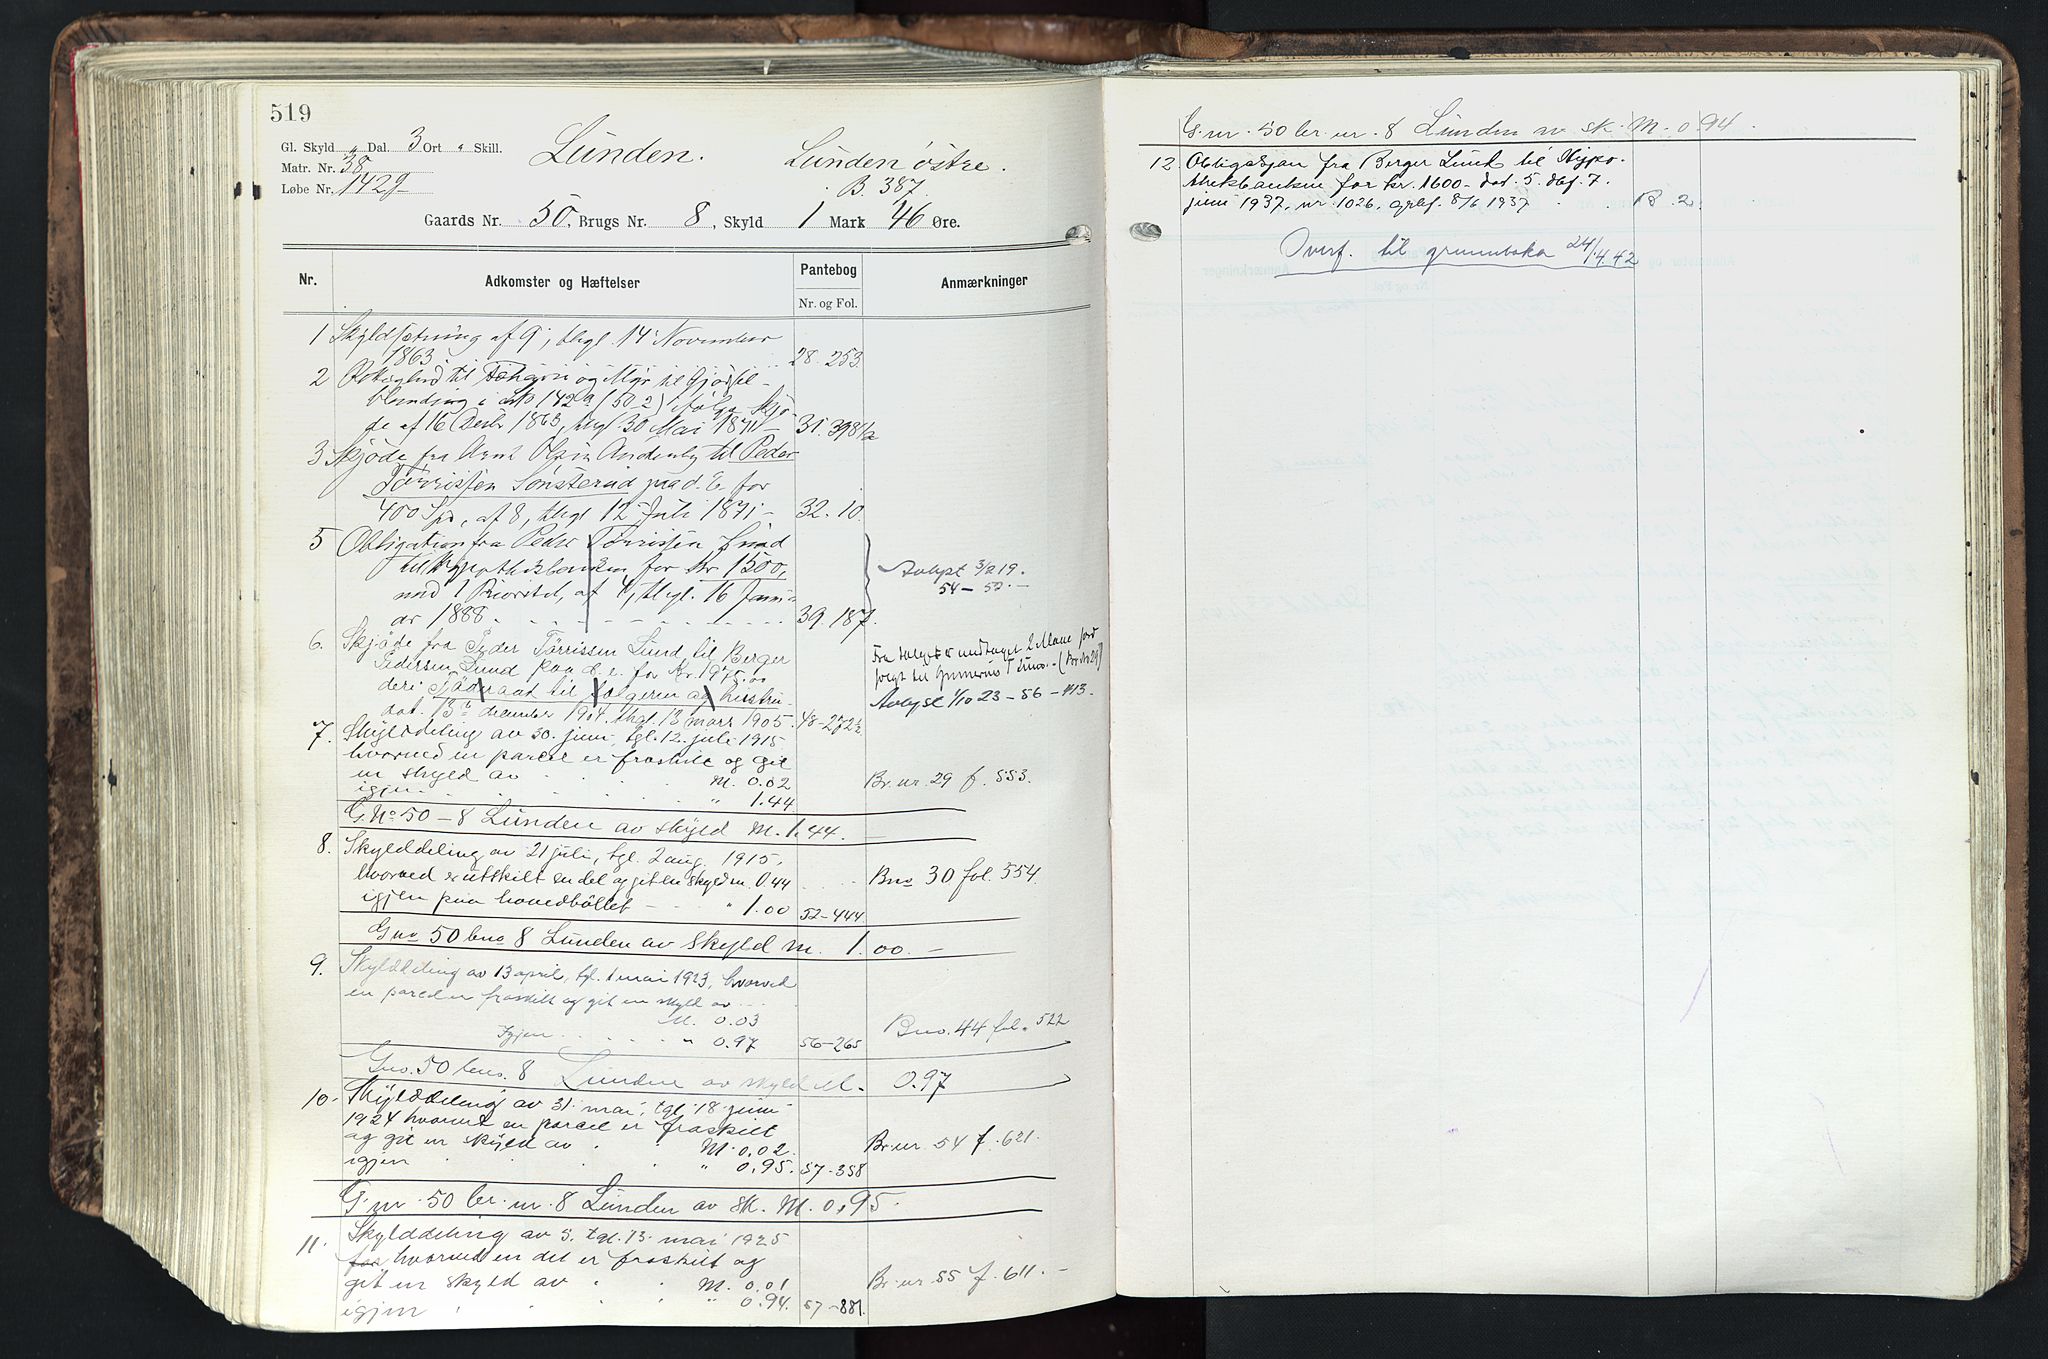 519
Gl. Skyld „ Dal. 3 Ort „ Skill.
Matr. Nr. 38
Løbe Nr. 142g
Lunden.
Lunden østre.
B. 387.
Gaards Nr. 50, Brugs Nr. 8, Skyld 1 Mark 46 Øre.
Nr. Adkomster og Hæftelser Pantebog Anmærkninger
Nr. og Fol.
1 Skyldsætning af 9, thgl. 14 November
1863 28. 253
2 til og Myr til Gjødsel-
blanding i 142a (50.2) ifølge Skjø-
de af 16 Decbr 1863, thgl 30 Mai 1871 31. 398
3 Skjøde fra Arnt Olsen til Peder
Torrissen Sønsterud paa d. E. for
400 Spd, af 8, thgl 12 Juli 1871 32. 10
5 Obligation fra Peder Torrissen Lund
til Hypothekbanken for Kr 1500,
med 1 Prioritet, af 4, thgl. 16 Janu-
ar 1888 39. 187.
Avlyst 3/2 19.
54 – 52. –
6. Skjøde fra Peder Torrissen Lund til Berger
Pedersen Lund paa d. e. for Kr. 1975.00
deri Föderaad til sælgeren og hustru.
dat. 13 december 1904. thgl. 13 mars 1905. 48-272
Fra salget er undtaget 2 Maal jord
solgt til Gunerius (Br. No 29)
Avlyst 1/10 23 – 56 – 113.
7. Skylddeling av 30. juni, tgl. 12. juli 1915
hvorved en parcel er fraskilt og git
en skyld av M. 0.02 Br. nr. 29 f. 553.
igjen „ 1.44
G. No 50 – 8 Lunden av skyld M. 1.44. –
8. Skylddeling av 21 juli, tgl. 2 aug. 1915,
hvorved er utskilt en del og git en skyld m. 0.44 Bno 30 fol. 554.
igjen paa hovedbøllet – „ 1.00 52-444.
Gno 50 bno 8 Lunden av skyld m. 1.00. –
9. Skylddeling av 13 april, tgl. 1 mai 1923, hvorved
en parcel er fraskilt og git en skyld av
M. 0.03 Bno. 44 fol. 522
Igjen „ 0.97 56-265
Gno. 50 bno. 8 Lunden av skyld M. 0.97
10. Skylddeling av 31. mai, tgl. 18. juni
1924 hvorved en parcel er fraskilt
og git en skyld av M. 0.02. Br. nr. 54 f. 621.
igjen „ 0.95. 57-358
G. nr. 50 br. nr. 8 Lunden av sk. M. 0,95.
11. Skylddeling av 5. tgl. 13. mai 1925
for hvorved en del er fraskilt og
git en skyld av M. 0.01 Br. nr. 55 f. 611. –
igjen „ 0.94. 57-881.
G. nr. 50 br. nr. 8 Lunden av sk. M. 0.94.
12 Obligasjon fra Berger Lund til Hypo-
thekbanken for kr. 1600- dat. 5. dbf. 7.
juni 1937, nr. 1026, grbf. 8/6 1937 B 2.
Overf. til grunnboka 24/4.42